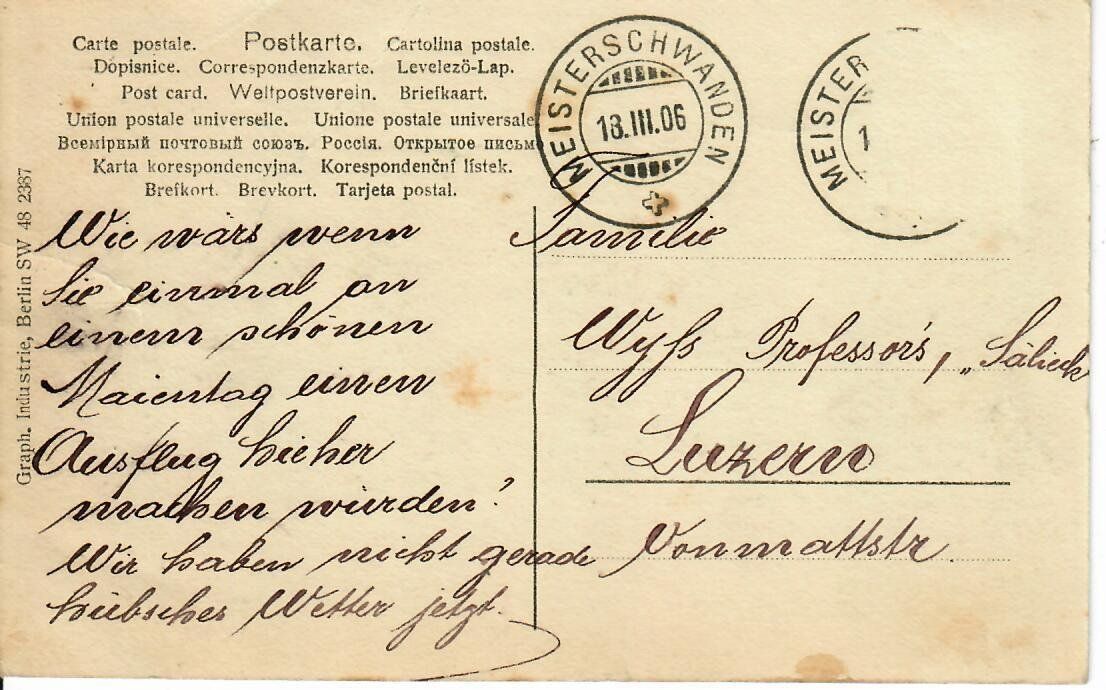 Carte postale. Postkarte. Cartolina postale.
Dopisnice. Correspondenzkarte. Levelező-Lap.
Post card. Weltpostverein. Briefkaart.
Union postale universelle. Unione postale universale
Всемірный почтовый союзъ. Россія. Открытое письмо
Karta korespondencyjna. Korespondenční lístek.
Brefkort. Brevkort. Tarjeta postal.
MEISTERSCHWANDEN
13.III.06
MEISTER
1
Graph. Industrie, Berlin SW 48 2387
Wie wärs wenn
Sie einmal an
einem schönen
Maientag einen
Ausflug hieher
machen würden?
Wir haben nicht gerade
hübsches Wetter jetzt.
Familie
Wyss Professors,
Luzern
Vonmattstr.